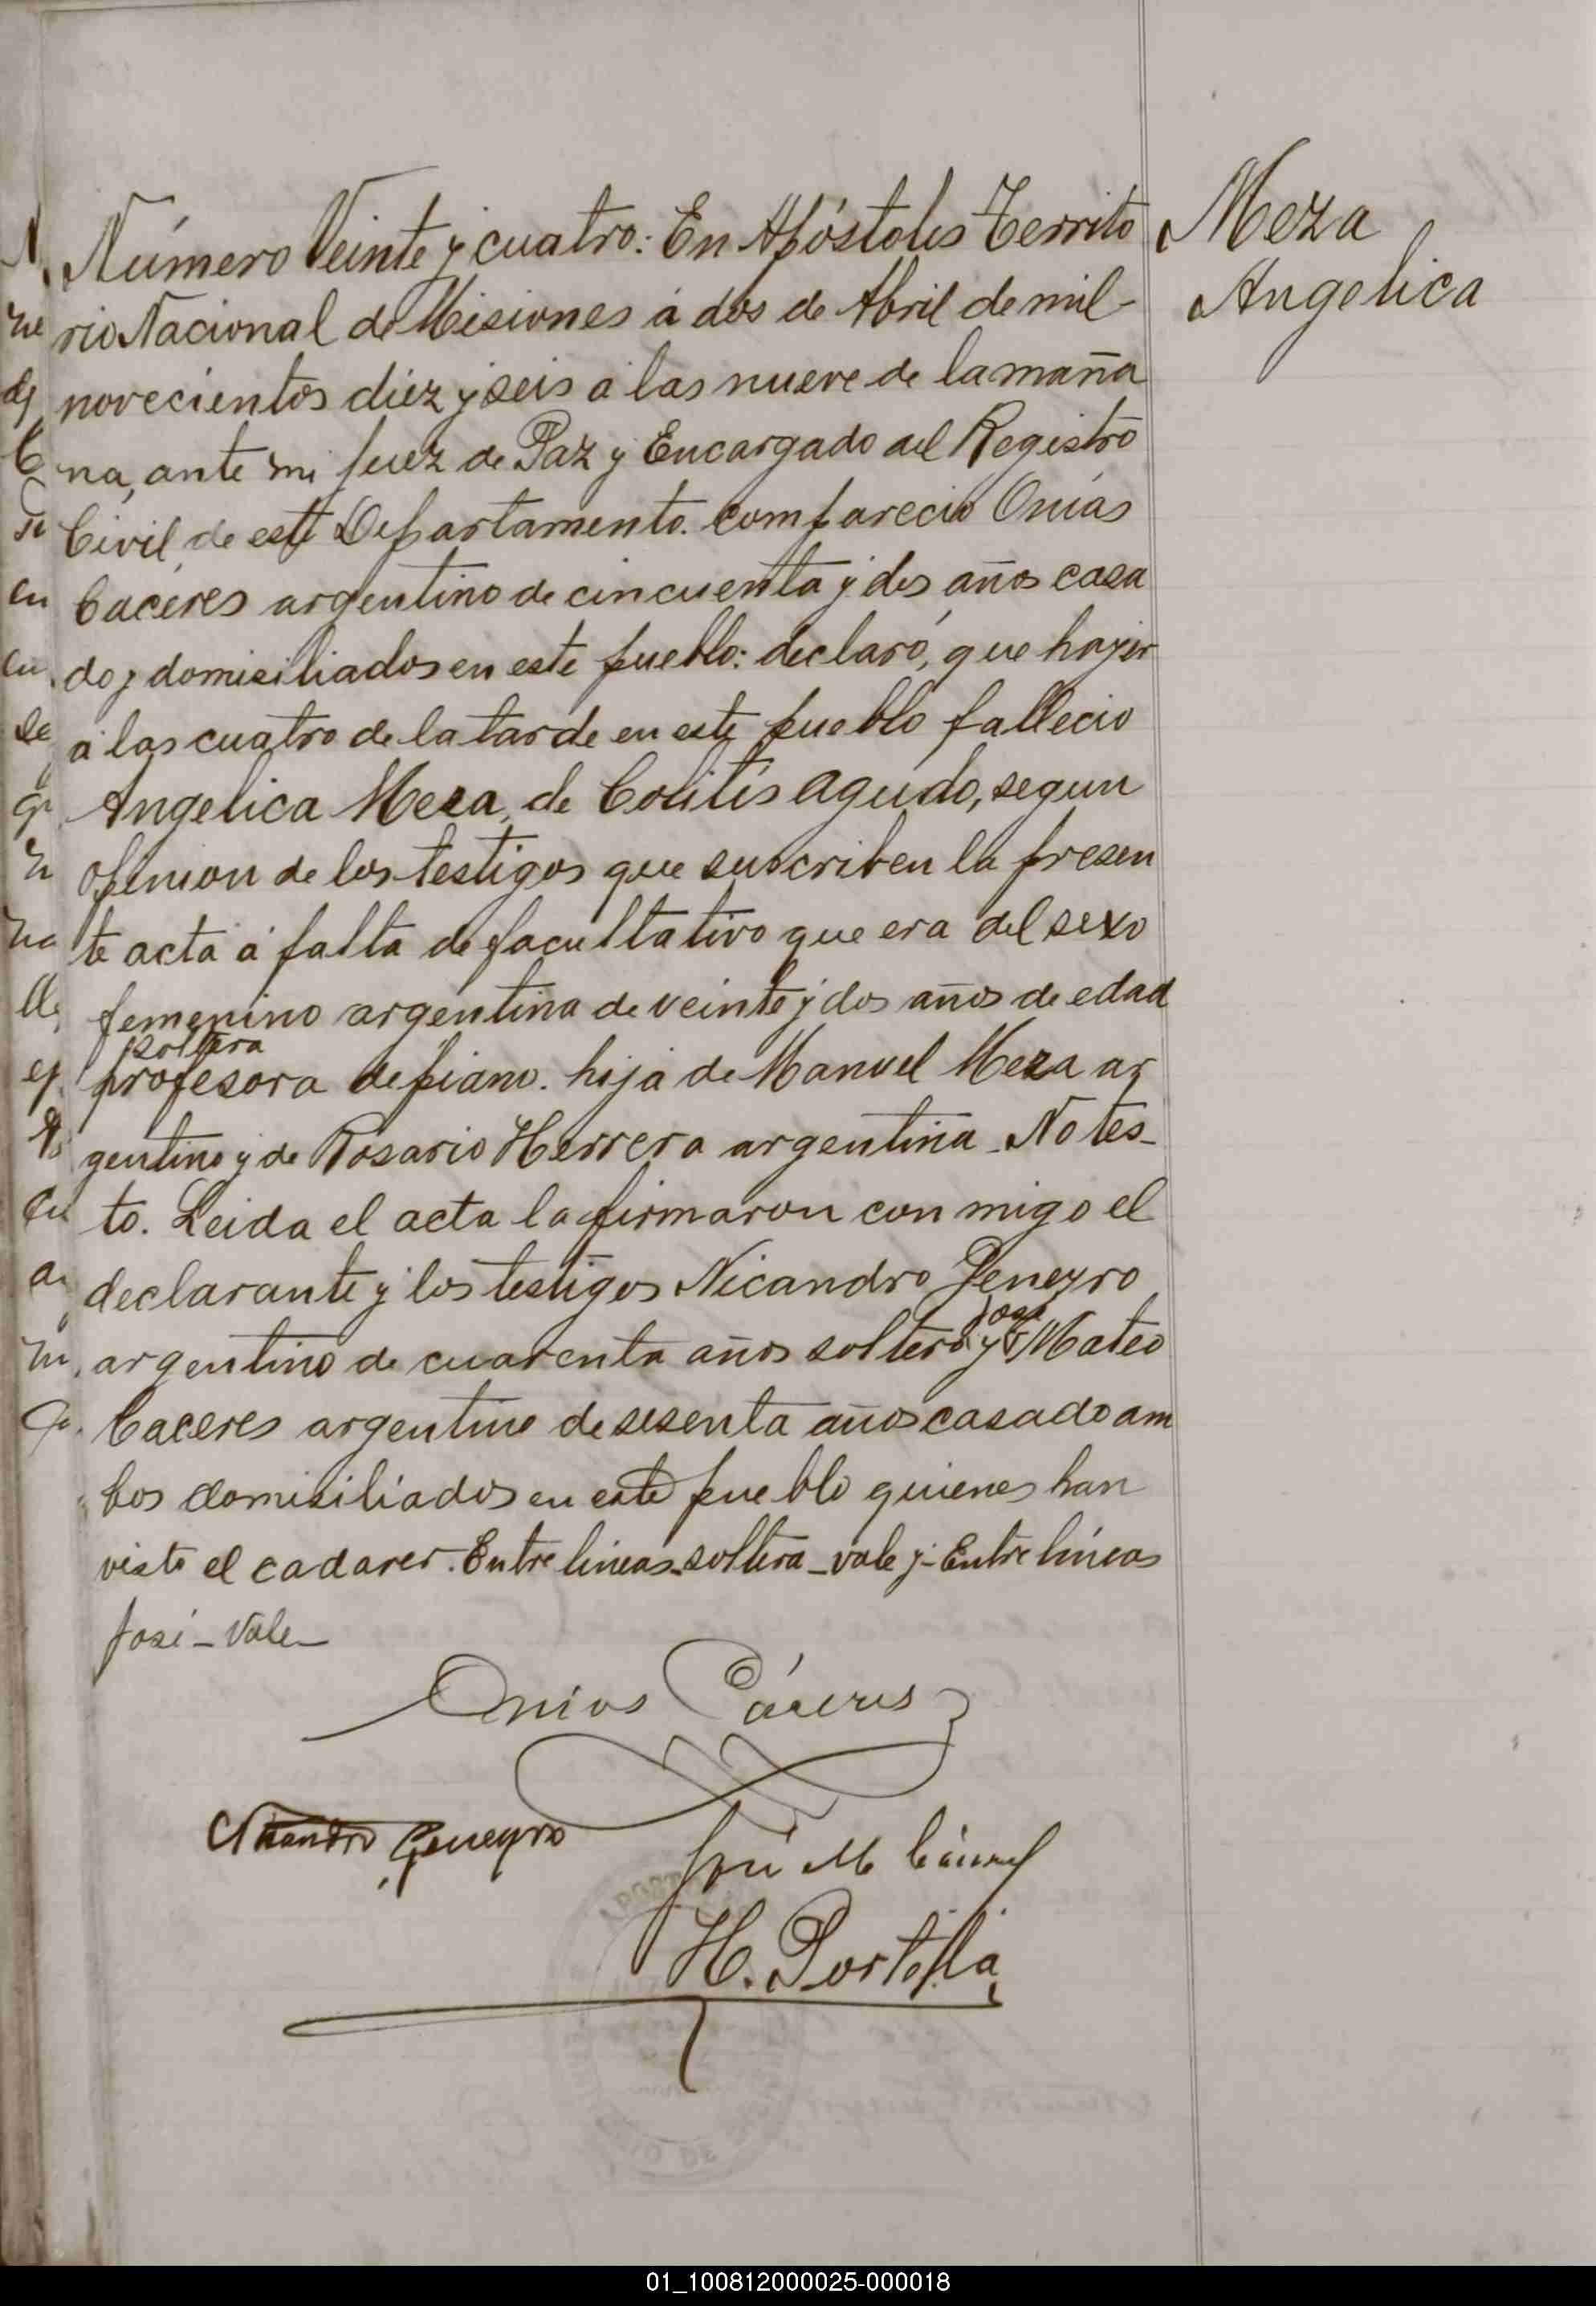 Número Veinte y cuatro: En Apóstoles Territo
rio Nacional de Misiones á dos de Abril de mil
novecientos diez y seis á las nueve de la maña
na, ante mi Juez de Paz y Encargado del Registro
Civil, de este Departamento. comparecio Onías
Cáceres argentino de cincuenta y dos años casa
do y domisiliados en este pueblo: declaró, que hayer
á las cuatro de la tarde en este pueblo fallecio
Angelica Meza, de Colitis agudo, segun
opinion de los testigos que suscriben la presen
te acta á falta de facultativo que era del sexo
femenino argentina de veinte y dos años de edad
soltera
profesora de piano. hija de Manuel Meza ar
gentino y de Rosario Herrera argentina - No tes-
to. Leida el acta la firmaron con migo el
declarante y los testigos Nicandro Geneyro
José
argentino de cuarenta años soltero y Mateo
Caceres argentino de sesenta años casado am
bos domisiliados en este pueblo quienes han
visto el cadaver. Entre lineas - soltera - vale y - Entre líneas
José - Vale -
Meza
Angelica
Onías Cáceres
Nicandro Geneyro
José M Cáceres
H. Portella
01_100812000025-000018